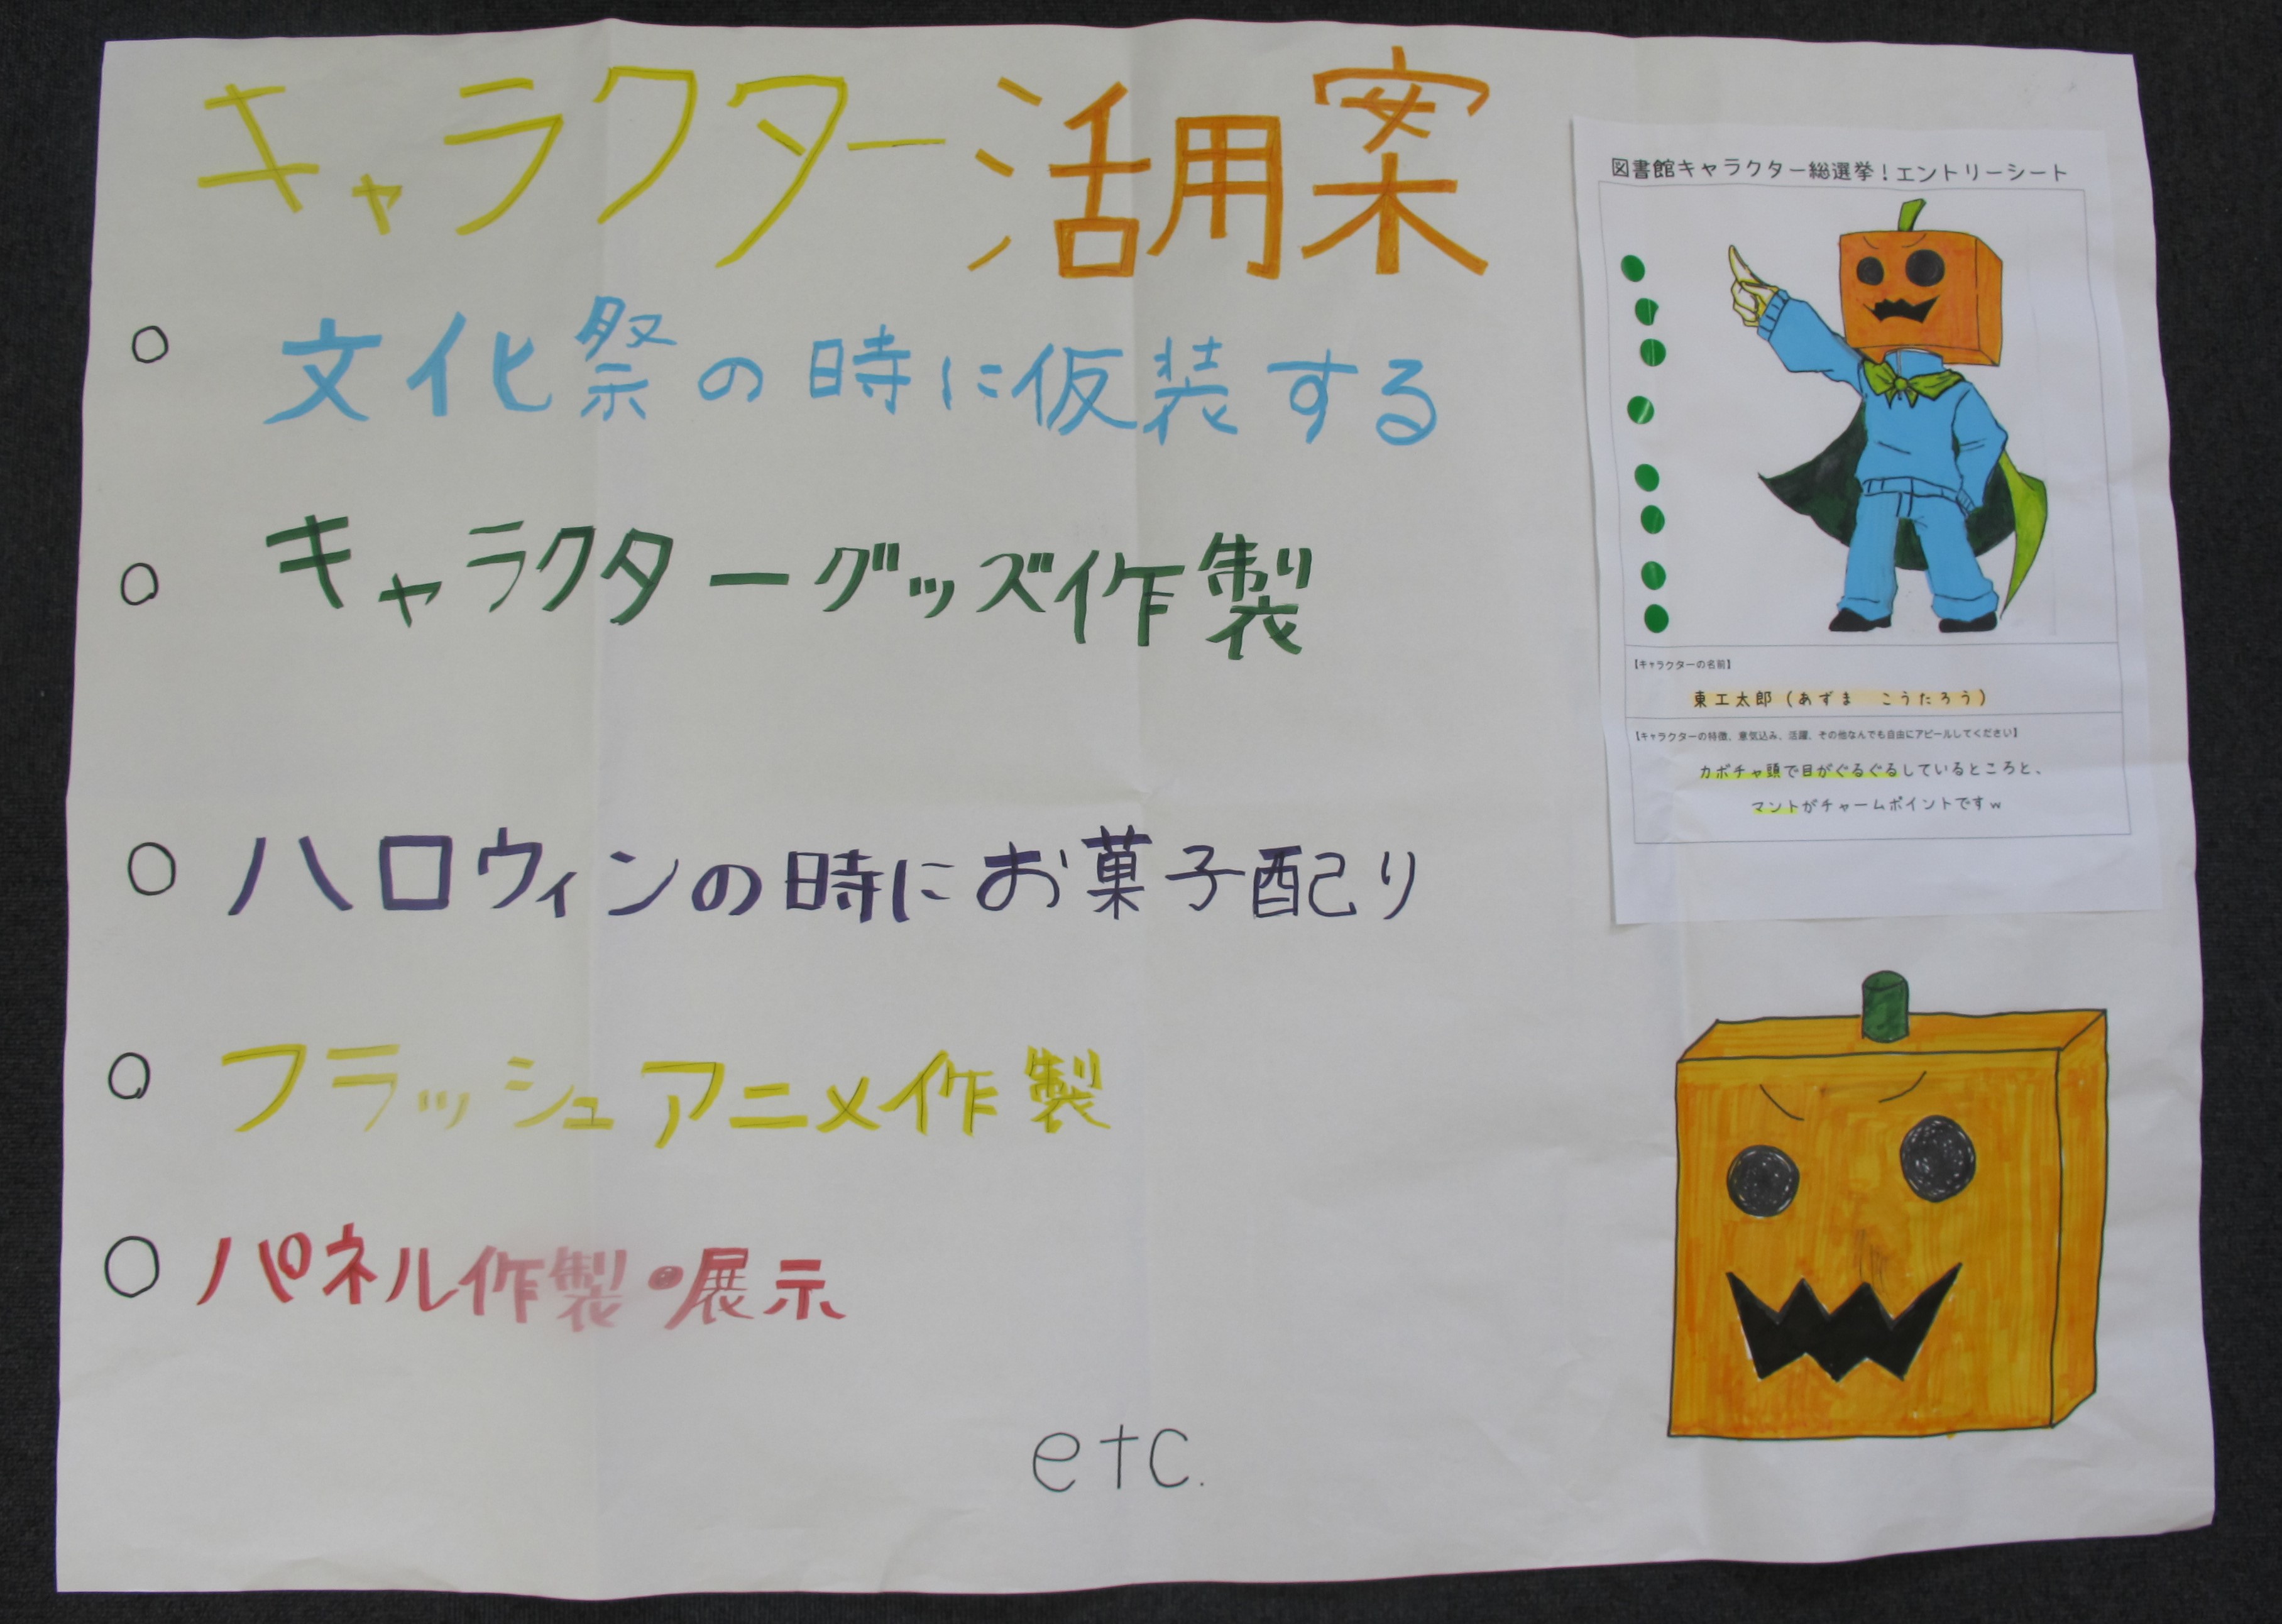 キャラクター活用案
○ 文化祭の時に仮装する
○ キャラクターグッズ作製
○ ハロウィンの時にお菓子配り
○ フラッシュアニメ作製
○ パネル作製・展示
etc.
図書館キャラクター総選挙！エントリーシート
【キャラクターの名前】
東工太郎（あずま　こうたろう）
【キャラクターの特徴、意気込み、活躍、その他なんでも自由にアピールしてください】
カボチャ頭で目がぐるぐるしているところと、
マントがチャームポイントですｗ